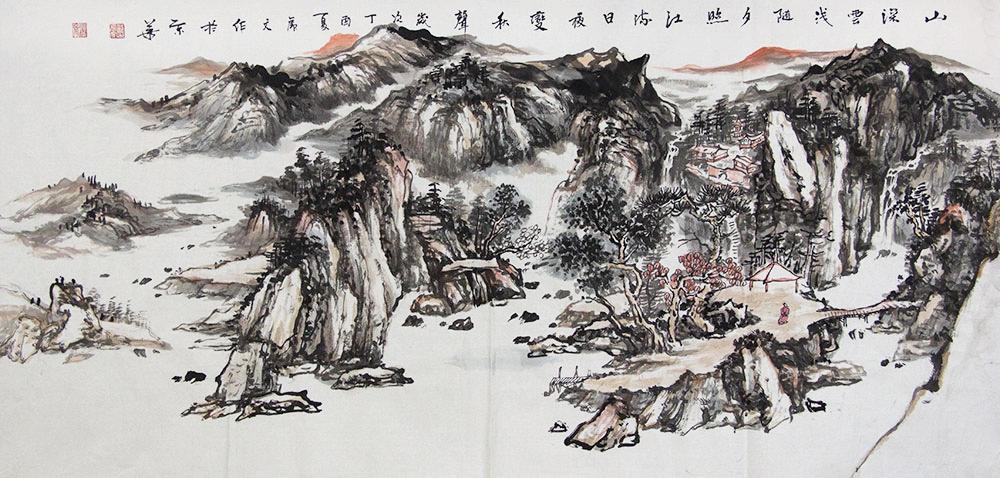 山深雲浅随夕照江流日夜變秋聲歲次丁酉夏文作於京華